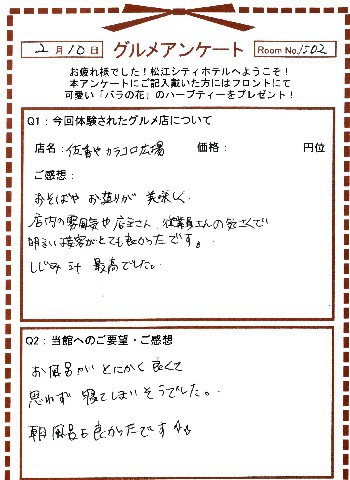 2月10日 グルメアンケート Room No.1502
お疲れ様でした!松江シティホテルへようこそ!
本アンケートにご記入戴いた方にはフロントにて
可愛い「バラの花」のハーブティーをプレゼント!
Q1:今回体験されたグルメ店について
店名: カラコロ広場 価格: 円位
ご感想:
おそばや お造りが 美味しく
店内の雰囲気や店主さん、従業員さんの気さくで
明るい接客がとても良かったです。
しじみ汁 最高でした。
Q2:当館へのご要望・ご感想
お風呂がとにかく良くて
思わず 寝てしまいそうでした。
朝風呂も良かったです